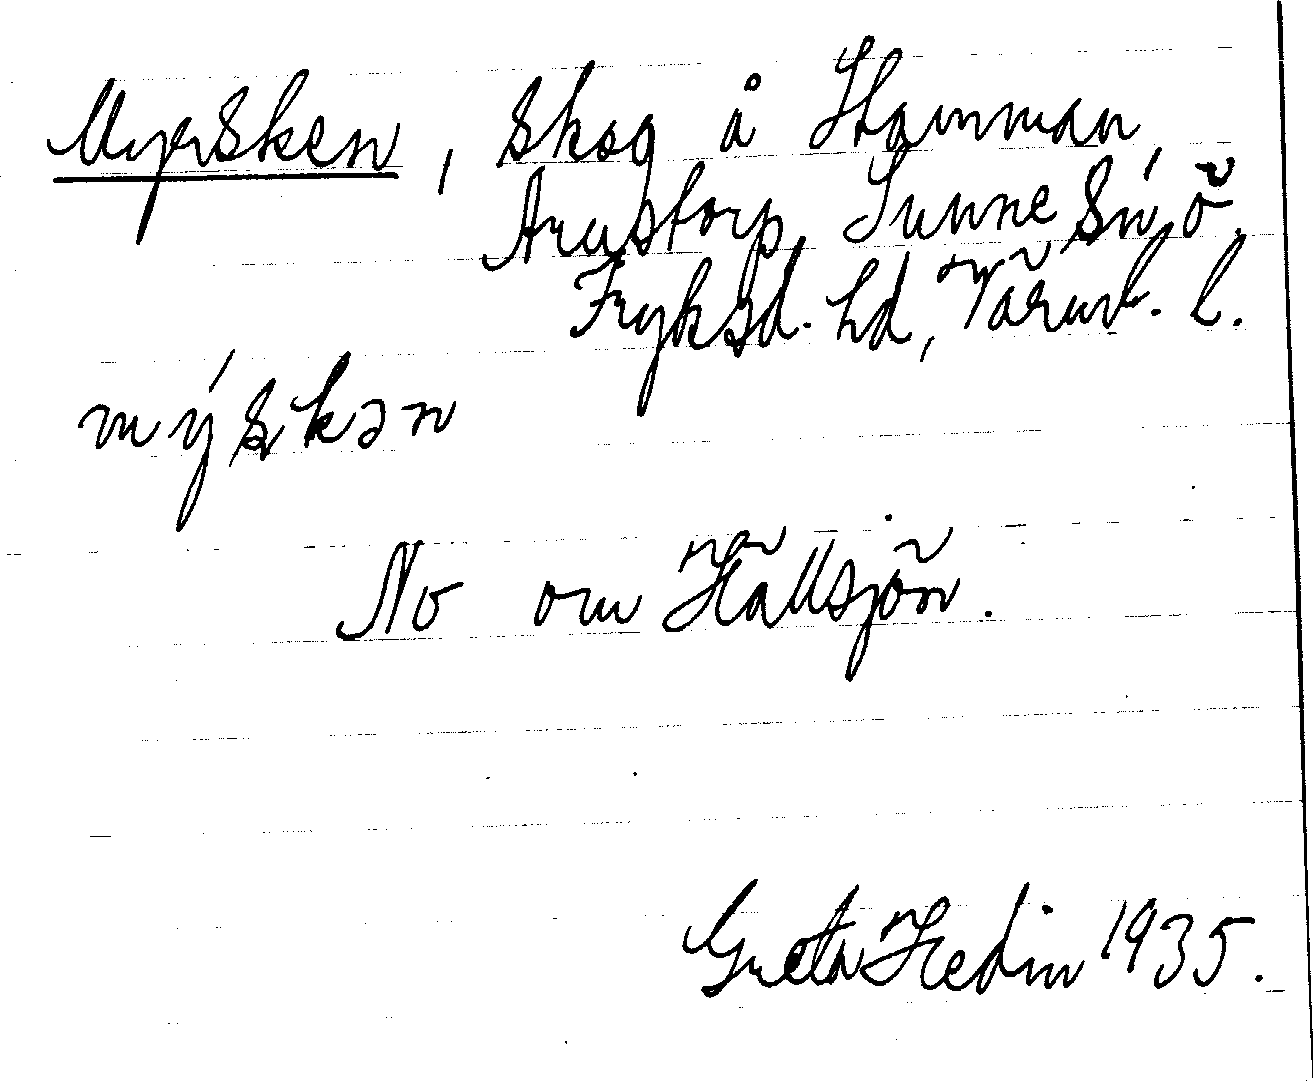 Myrsken, skog å Hamman,
Arnstorp, Sunne sn, ö.
Fryksd. hd, Värml. l.
mýskən
No om Hällsjön.
Greta Hedin 1935.